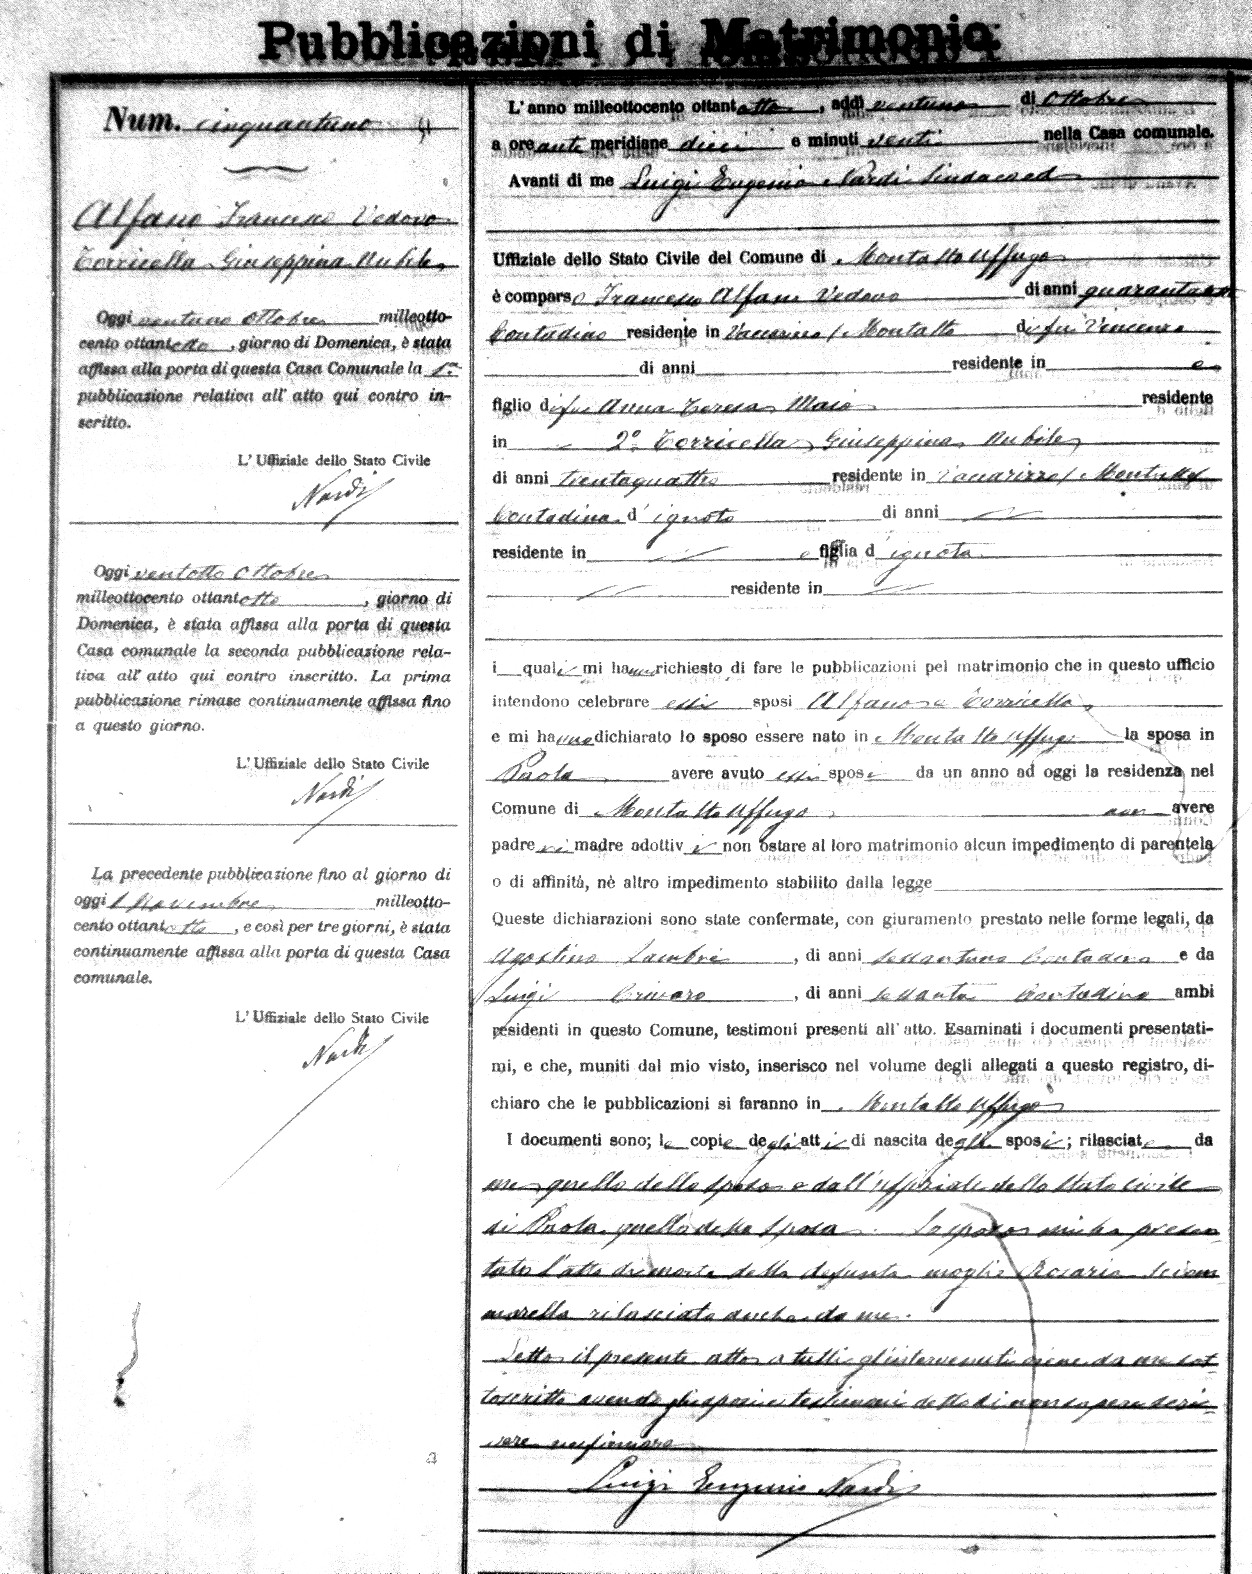 Pubblicazioni di Matrimonio
Num. cinquantuno 51
Alfano Francesco Vedovo
Torricella Giuseppina Nubile
Oggi ventuno ottobre milleotto-
cento ottantotto, giorno di Domenica, è stata
affissa alla porta di questa Casa Comunale la 1a
pubblicazione relativa all'atto qui contro in-
scritto.
L'Uffiziale dello Stato Civile
Nardi
Oggi ventotto ottobre
milleottocento ottantotto, giorno di
Domenica, è stata affissa alla porta di questa
Casa comunale la seconda pubblicazione rela-
tiva all'atto qui contro inscritto. La prima
pubblicazione rimase continuamente affissa fino
a questo giorno.
L'Uffiziale dello Stato Civile
Nardi
La precedente pubblicazione fino al giorno di
oggi 1 Novembre milleotto-
cento ottantotto, e così per tre giorni, è stata
continuamente affissa alla porta di questa Casa
comunale.
L'Uffiziale dello Stato Civile
Nardi
L'anno milleottocento ottantotto, addì ventuno di Ottobre
a ore anti meridiane dieci e minuti venti nella Casa comunale.
Avanti di me Luigi Eugenio Nardi Sindaco ed
Uffiziale dello Stato Civile del Comune di Montalto Uffugo
è comparso Francesco Alfano Vedovo di anni quarantuno
Contadino residente in Vaccarizzo / Montalto di fu Vincenzo
di anni residente in e
figlio di fu Anna Teresa Maio residente
in 2° Torricella Giuseppina Nubile
di anni trentaquattro residente in Vaccarizzo / Montalto
Contadina d'ignoto di anni
residente in e figlia d'ignota
residente in
i quali mi hanno richiesto di fare le pubblicazioni pel matrimonio che in questo ufficio
intendono celebrare essi sposi Alfano e Torricella
e mi hanno dichiarato lo sposo essere nato in Montalto Uffugo la sposa in
Paola avere avuto essi sposi da un anno ad oggi la residenza nel
Comune di Montalto Uffugo non avere
padre nè madre adottivi e non ostare al loro matrimonio alcun impedimento di parentela
o di affinità, nè altro impedimento stabilito dalla legge
Queste dichiarazioni sono state confermate, con giuramento prestato nelle forme legali, da
Agostino, di anni sessantuno Contadino e da
Luigi Crivaro, di anni sessanta Contadino ambi
residenti in questo Comune, testimoni presenti all'atto. Esaminati i documenti presentati-
mi, e che, muniti dal mio visto, inserisco nel volume degli allegati a questo registro, di-
chiaro che le pubblicazioni si faranno in Montalto Uffugo
I documenti sono; le copie degli atti di nascita degli sposi; rilasciate da
me quello dello sposo e dall'uffiziale dello Stato Civile
di Paola quello della sposa. Lo sposo mi ha presen-
tato l'atto di morte della defunta moglie Rosaria Sciam-
marella rilasciato anche da me.
Letto il presente atto a tutti gl'intervenuti viene da me sot-
toscritto avendo gli sposi e testimoni detto di non sapere scri-
vere nè firmare
Luigi Eugenio Nardi